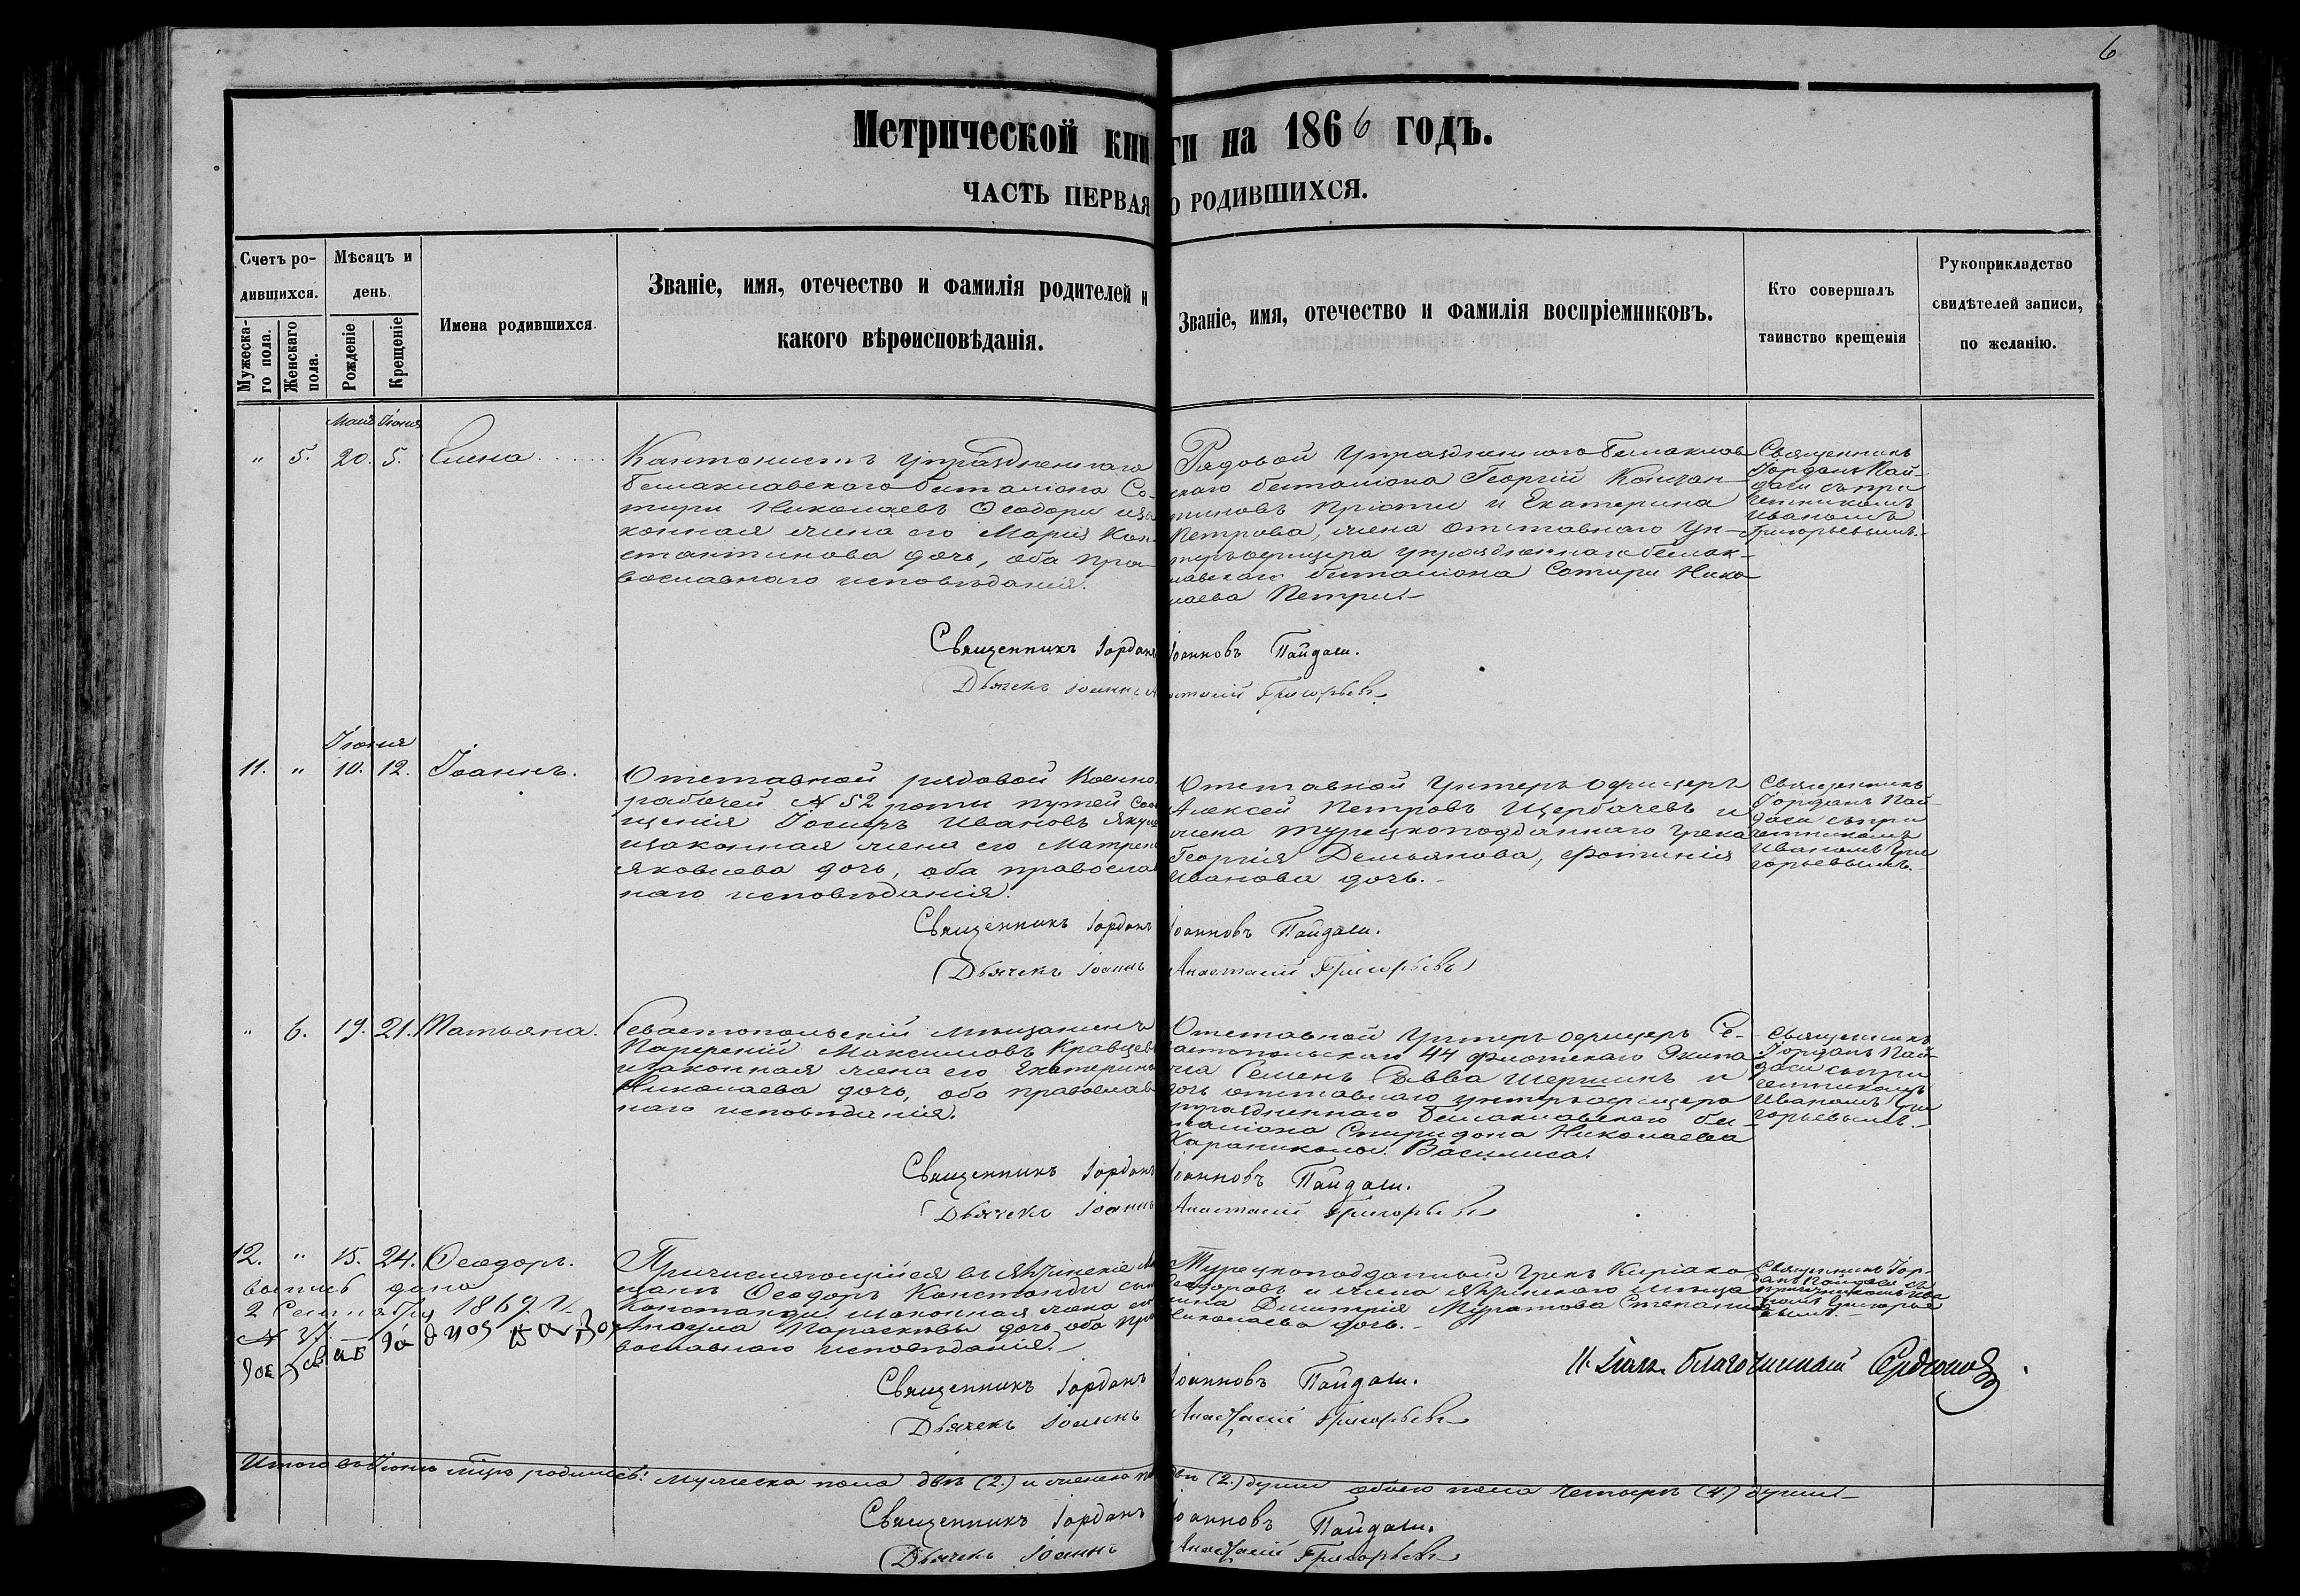 6
Метрической книги на 1866 годъ.
ЧАСТЬ ПЕРВАЯ О РОДИВШИХСЯ.
Счетъ ро-
дившихся.
Мужеска-
го пола.
Женскаго
пола.
Мѣсяцъ и
день.
Рожденіе
Крещеніе
Имена родившихся.
Званіе, имя, отечество и фамилія родителей и
какого вѣроисповѣданія.
Званіе, имя, отечество и фамилія воспріемниковъ.
Кто совершалъ
таинство крещенія
Рукоприкладство
свидѣтелей записи,
по желанію.
Маія Іюня
" 5. 20. 5. Елена
Кантонистъ упраздненнаго
Балаклавскаго баталіона Со-
тири Николаевъ Ѳеодори и за
конная жена его Марія Кон-
стантинова дочь, оба пра-
вославнаго исповѣданія.
Рядовой упраздненнаго Балаклав
скаго баталіона Георгій Констан
тиновъ Христи и Екатерина
Петрова, жена отставнаго Ун-
теръ офицера упраздненнаго балак-
лавскаго баталіона Сотири Нико
лаева Петри.
Священникъ
Іорданъ Пай-
даси съ при
четникомъ
Иваномъ
Григорьевымъ.
Священникъ Іорданъ Іоанновъ Пайдаси.
Дьячекъ Іоаннъ Анастасій Григорьевъ
Іюня
11. " 10. 12. Іоаннъ.
Отставной рядовой Военно
рабочей № 52 роты путей Сооб
щенія Іосифъ Ивановъ
и законная жена его Матрена
Яковлева дочь, оба православ
наго исповѣданія.
Отставной Унтеръ офицеръ
Алексей Петровъ Щербачевъ и
жена турецкоподданнаго грека
Георгія Демьянова, Фотинія
Иванова дочь.
Священникъ
Іорданъ Пай-
даси съ при
четникомъ
Иваномъ Гри
горьевымъ.
Священникъ Іорданъ Іоанновъ Пайдаси.
Дьячекъ Іоаннъ Анастасій Григорьевъ
" 6. 19. 21. Татьяна.
Севастопольскій мѣщанинъ
Парфеній Максимовъ Кравцевъ
и законная жена его Екатерина
Николаева дочь, оба православ
наго исповѣданія.
Отставной Унтеръ-офицеръ Се-
вастопольскаго 44 флотскаго Экипа
жа Семенъ Савва Шершинъ и
дочь отставнаго унтеръ офицера
упраздненнаго балаклавскаго ба-
таліона Спиридона Николаева
Василиса.
Священникъ
Іорданъ Пай-
даси съ при
четникомъ
Иваномъ Гри
горьевымъ.
Священникъ Іорданъ Іоанновъ Пайдаси.
Дьячекъ Іоаннъ Анастасій Григорьевъ
12. " 15. 24. Ѳеодоръ.
выпись дана
1869 г.
№ 37.
Причисляющійся въ Ялтинскіе мѣ
щане Ѳеодоръ Константи сынъ
Константи и законная жена его
Параскева дочь, оба пра
вославнаго исповѣданія.
Турецкоподданный Грекъ Киріако
Ѳеодоровъ и жена Ялтинскаго мѣща
нина Димитрія Муратова Степанида
Николаева дочь.
Священникъ Іор-
данъ Пайдаси съ
причетникомъ Ива
номъ Григорье
вымъ.
Священникъ Іорданъ Іоанновъ Пайдаси.
Дьячекъ Іоаннъ Анастасій Григорьевъ
благочинный
Итого въ Іюнѣ м-цѣ родилось: мужеска пола двѣ (2.) и женска пола двѣ (2.) души обоего пола четыре (4.) души
Священникъ Іорданъ Іоанновъ Пайдаси.
Дьячекъ Іоаннъ Анастасій Григорьевъ